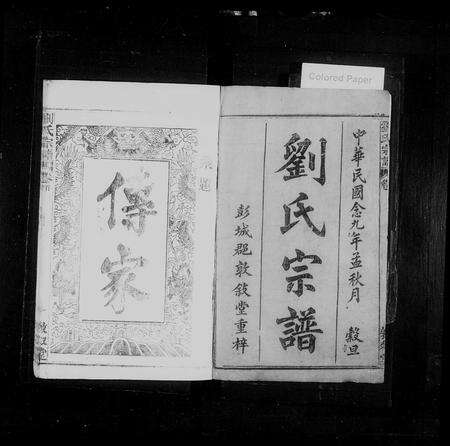 Colored Paper
中華民國念九年孟秋月 穀旦
劉氏宗譜
彭城郡敦敍堂重梓
傳家
劉氏宗譜